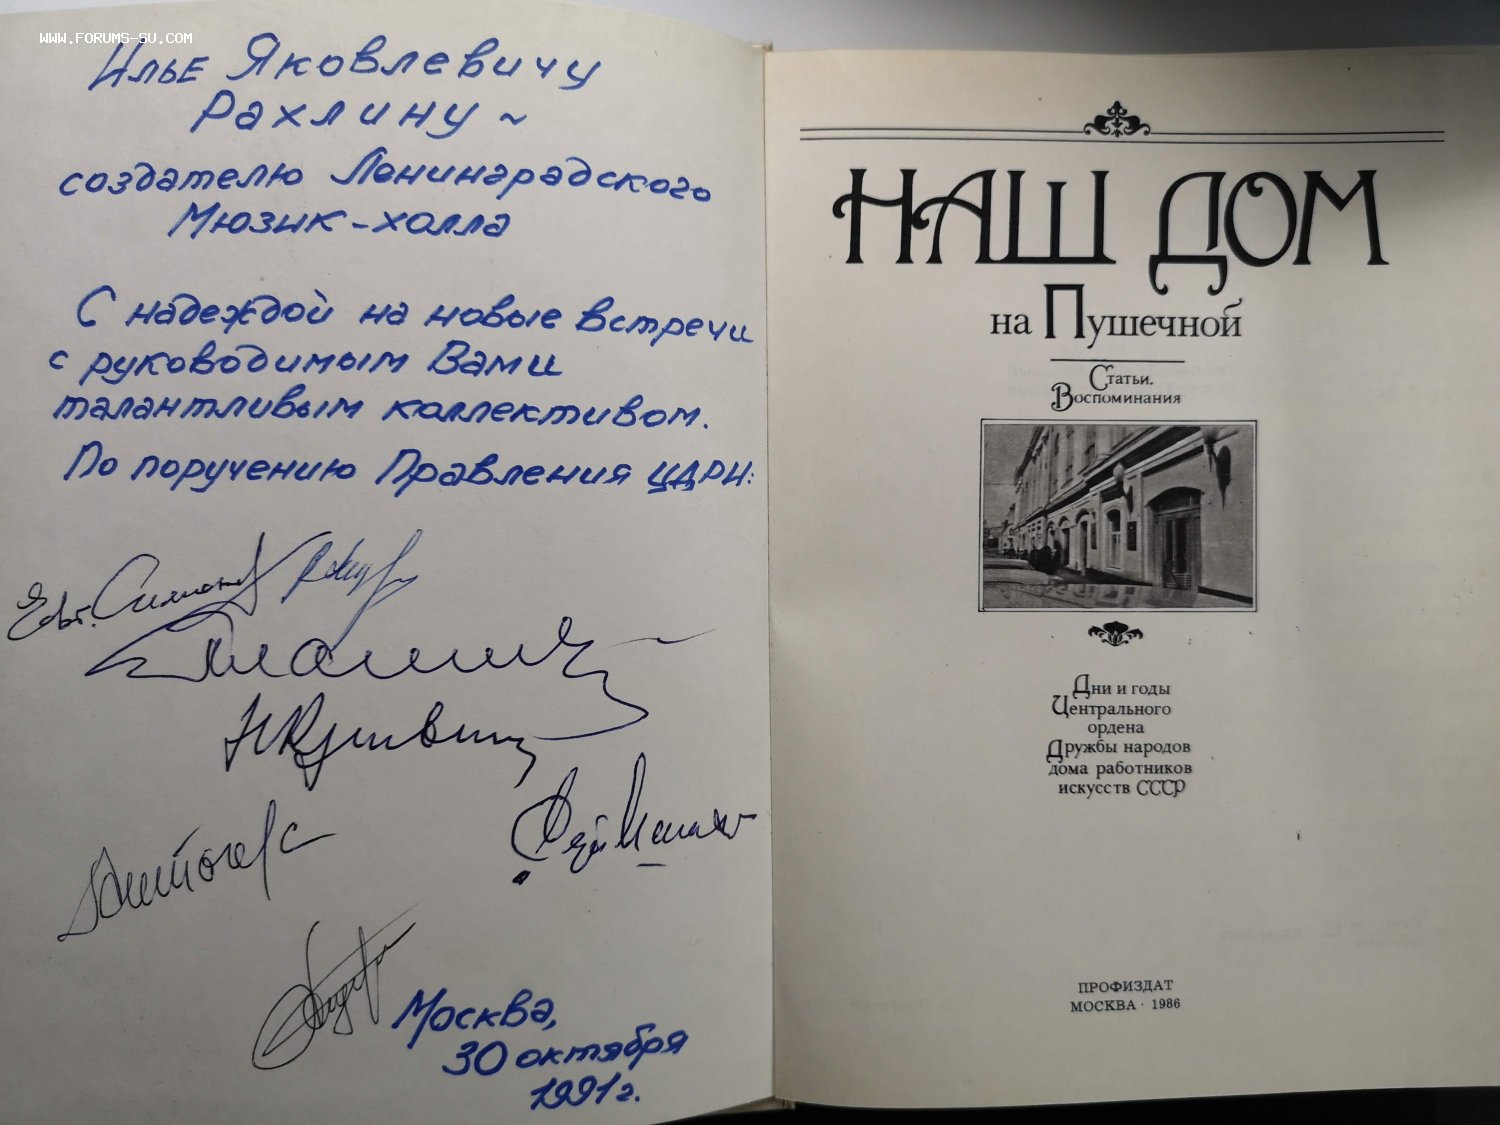 WWW.FORUMS-SU.COM
Илье Яковлевичу
Рахлину ~
создателю Ленинградского
Мюзик-холла
С надеждой на новые встречи
с руководимым Вами
талантливым коллективом.
По поручению Правления ЦДРИ:
Евг. Симонов
Москва,
30 октября
1991 г.
НАШ ДОМ
на Пушечной
Статьи.
Воспоминания
Дни и годы
Центрального
ордена
Дружбы народов
дома работников
искусств СССР
ПРОФИЗДАТ
МОСКВА · 1986